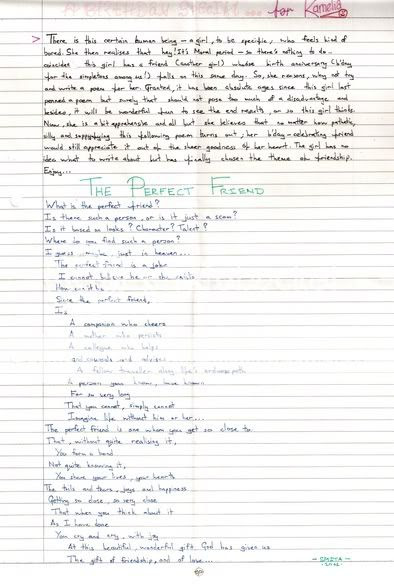 A ... for Kamelia
> There is this certain human being - a girl, to be specific, who feels kind of
bored. She then realises that hey! It's Moral period - so there's nothing to do -
coincident this girl has a friend (another girl) whose birth anniversary (b'day
for the simpletons among us!) falls on this same day. So, she reasons, why not try
and write a poem for her. Granted, it has been absolute ages since this girl last
penned a poem but surely that should not pose too much of a disadvantage and
besides, it will be wonderful fun to see the end results, or so this girl thinks.
Now, she is a bit apprehensive and all but she believes that no matter how pathetic,
silly and this following poem turns out, her b'day-celebrating friend
would still appreciate it out of the sheer goodness of her heart. The girl has no
idea what to write about but has finally chosen the theme of friendship.
Enjoy...
THE PERFECT FRIEND
What is the perfect friend?
Is there such a person, or is it just a scam?
Is it based on looks? Character? Talent?
Where do you find such a person?
I guess, maybe, just in heaven...
The perfect friend is a joker
I cannot believe he or she exists
How can it be...
Since the perfect friend,
Is
A companion who cheers
A mother who persists
A collegue who helps
and counsels and advises
A fellow traveller along life's path
A person you know, have known
For so very long
That you cannot, simply cannot
Imagine life without him or her...
The perfect friend is one whom you get so close to
That, without quite realising it,
You form a bond
Not quite knowing it,
You share your lives, your hearts
The and tears, joys and happiness
Getting so close, so very close
That when you think about it
As I have done
You cry and cry, with joy
At this beautiful, wonderful gift God has given us
The gift of friendship, and of love...